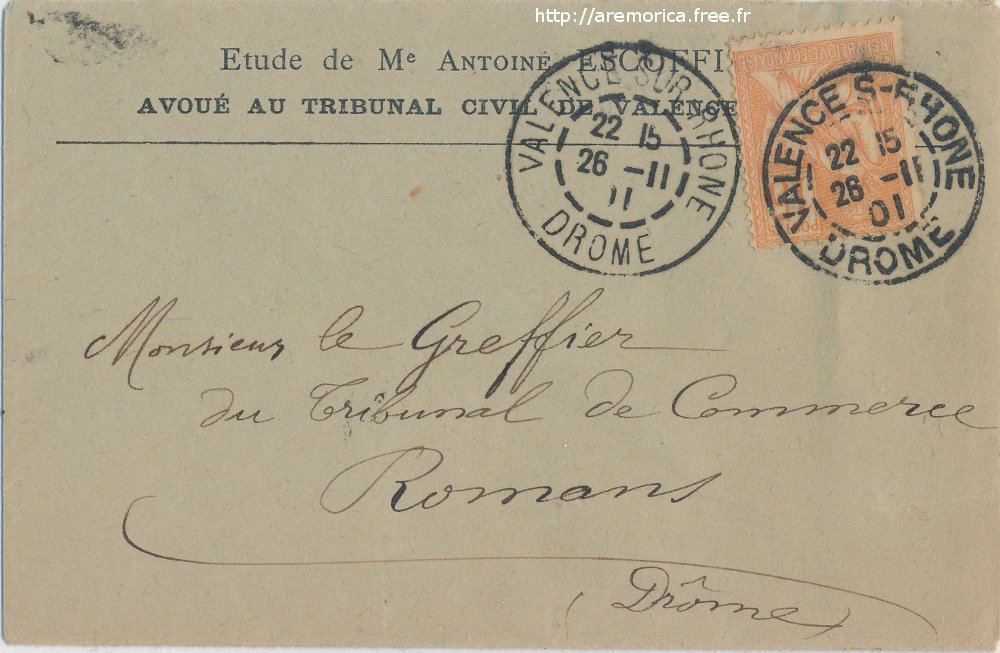 http://aremorica.free.fr
Etude de Me Antoine ESCOFFI
AVOUÉ AU TRIBUNAL CIVIL DE VALENCE
VALENCE SUR RHONE
22 15
26 -11
DROME
VALENCE S-RHONE
22 15
26 -11
01
DROME
Monsieur le Greffier
du Tribunal de Commerce
Romans
(Drôme)